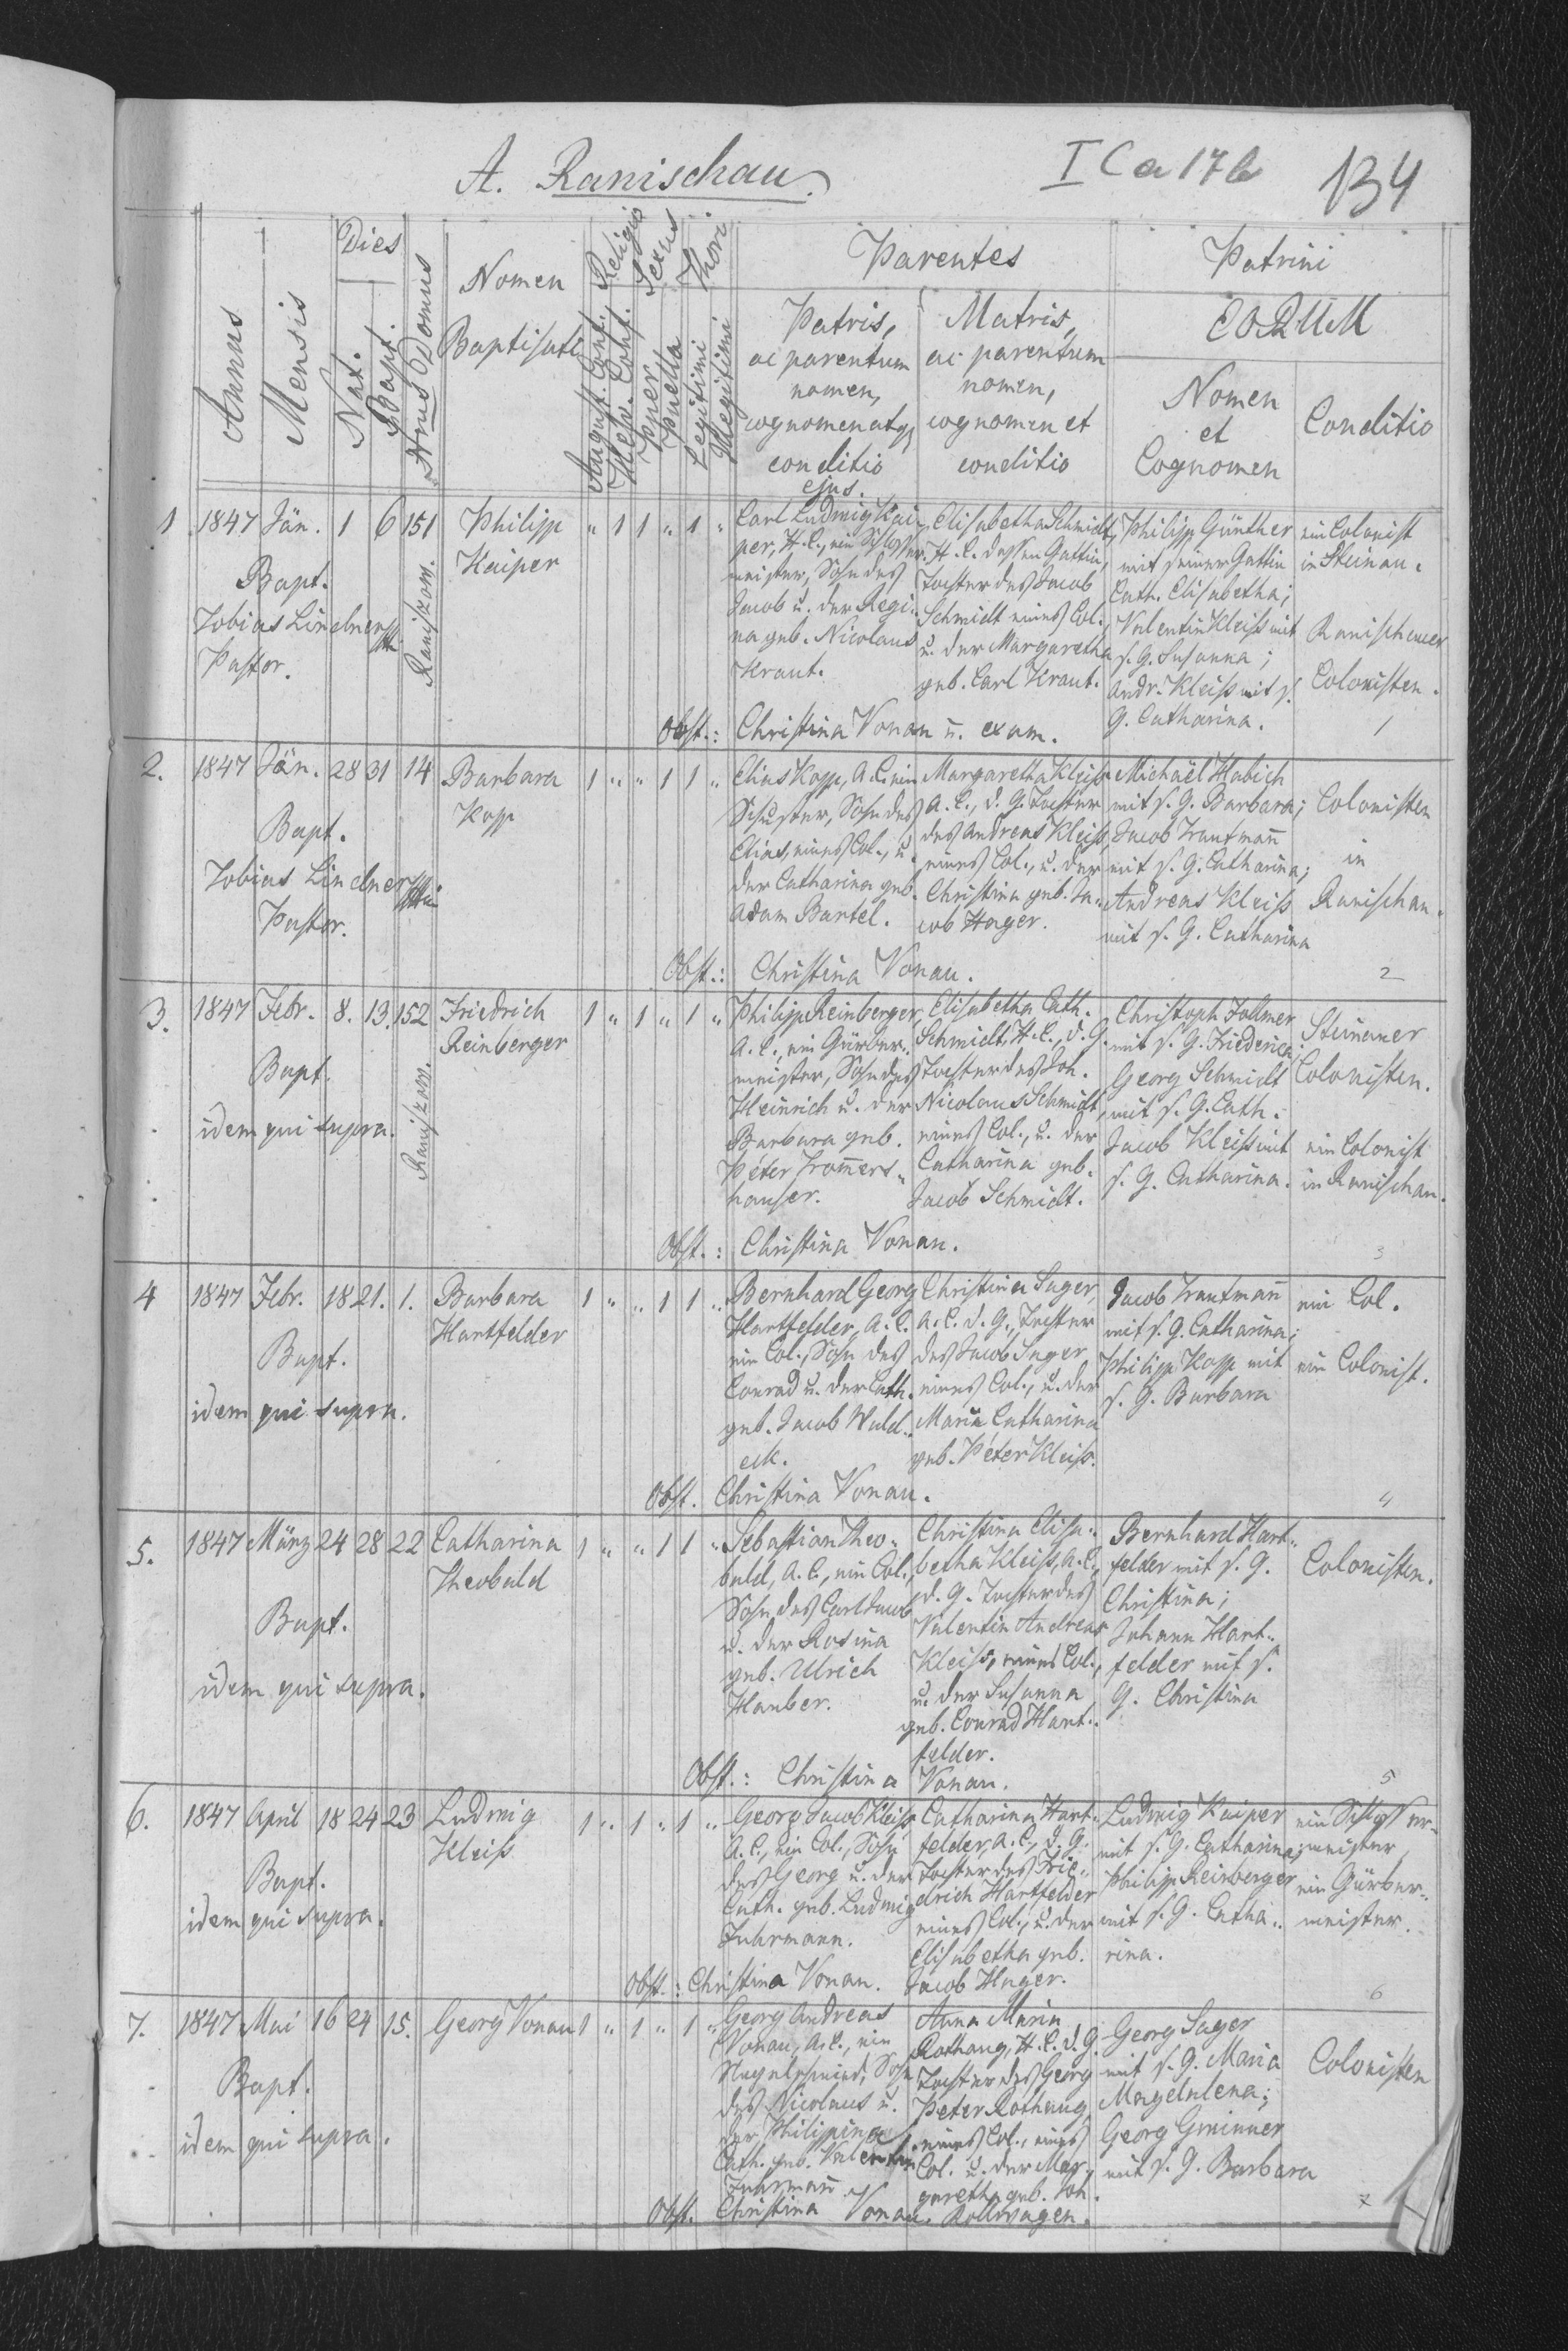 A. Ranischau.
I C a 17 b
134
Annus
Mensis
Dies
Nat.
Bapt.
Nrus Domus
Nomen
Baptisati
Religio
August. Conf.
Helv. Conf.
Sexus
Puer
Puella
Thori
Legitimi
Illegitimi
Parentes
Patris,
ac parentum
nomen,
cognomen atq
conditio
ejus.
Matris,
ac parentum
nomen,
cognomen et
conditio
Patrini
EORUM
Nomen
et
Cognomen
Conditio
1 1847 Jän. 1 6 151
Philipp
Kaiper
" 1 1 " 1 "
Bapt.
Tobias Lindner
Pastor.
Ranizow.
Carl Ludwig Kai-
per, H. C., ein Schlosser-
meister, Sohn des
Jacob u. der Regi-
na geb. Nicolaus
Kraut.
Elisabetha Schmidt,
H. C. dessen Gattin,
Tochter des Jacob
Schmidt eines Col.
u. der Margaretha
geb. Carl Kraut.
Philipp Günther
mit seiner Gattin
Cath. Elisabetha;
Valentin Kleiss mit
s. G. Susanna;
Andr. Kleiss mit s.
G. Catharina.
ein Colonist
in Steinau.
Ranischauer
Colonisten.
1
Obst.: Christina Vonau u. exam.
2. 1847 Jän. 28 31 14
Barbara
Kopp
1 " " 1 1 "
Bapt.
Tobias Lindner
Pastor.
Elias Kopp, A. C. ein
Schuster, Sohn des
Elias, eines Col., u.
der Catharina geb.
Adam Bartel.
Margaretha Kleiss
A. C., d. G. Tochter
des Andreas Kleiss,
eines Col., u. der
Christina geb. Ja-
cob Hager.
Michaël Habich
mit s. G. Barbara;
Jacob Trautmann
mit s. G. Catharina;
Andreas Kleiss
mit s. G. Catharina
Colonisten
in
Ranischau.
2
Obst.: Christina Vonau.
3. 1847 Febr. 8. 13. 152
Friedrich
Reinberger
1 " 1 " 1 "
Bapt.
idem qui supra.
Ranizow.
Philipp Reinberger,
A. C., ein Gürber-
meister, Sohn des
Heinrich u. der
Barbara geb.
Peter Trommers-
hauser.
Elisabetha Cath.
Schmidt, H. C., d. G.
Tochter des Joh.
Nicolaus Schmidt,
eines Col., u. der
Catharina geb.
Jacob Schmidt.
Christoph Follmer
mit s. G. Friederica;
Georg Schmidt
mit s. G. Cath.
Jacob Kleiss mit
s. G. Catharina.
Steinauer
Colonisten.
ein Colonist
in Ranischau.
3
Obst.: Christina Vonau.
4 1847 Febr. 18 21. 1.
Barbara
Hartfelder
1 " " 1 1 "
Bapt.
idem qui supra.
Bernhard Georg
Hartfelder, A. C.
ein Col., Sohn des
Conrad u. der Cath.
geb. Jacob Wald-
eck.
Christina Sager,
A. C. d. G., Tochter
des Jacob Sager
eines Col., u. der
Maria Catharina
geb. Peter Kleiss.
Jacob Trautmann
mit s. G. Catharina;
Philipp Kopp mit
s. G. Barbara
ein Col.
ein Colonist.
4
Obst. Christina Vonau.
5. 1847 März 24 28 22
Catharina
Theobald
1 " " 1 1 "
Bapt.
idem qui supra.
Sebastian Theo-
bald, A. C., ein Col.,
Sohn des Carl Jacob
u. der Rosina
geb. Ulrich
Hauber.
Christina Elisa-
betha Kleiss, A. C.,
d. G. Tochter des
Valentin Andreas
Kleiss, eines Col.,
u. der Susanna
geb. Conrad Hart-
felder.
Bernhard Hart-
felder mit s. G.
Christina;
Johann Hart-
felder mit s.
G. Christina
Colonisten.
5
Obst.: Christina Vonau.
6. 1847 April 18 24 23
Ludwig
Kleiss
1 " 1 " 1 "
Bapt.
idem qui supra.
Georg Jacob Kleiss
A. C., ein Col., Sohn
des Georg u. der
Cath. geb. Ludwig
Fuhrmann.
Catharina Hart-
felder, A. C., d. G.
Tochter des Frie-
drich Hartfelder
eines Col., u. der
Elisabetha geb.
Jacob Hager.
Ludwig Kaiper
mit s. G. Catharina;
Philipp Reinberger
mit s. G. Catha-
rina.
ein Schlosser-
meister,
ein Gürber-
meister.
6
Obst.: Christina Vonau.
7. 1847 Mai 16 24 15.
Georg Vonau
1 " 1 " 1 "
Bapt.
idem qui supra.
Georg Andreas
Vonau, A. C., ein
Nagelschmied, Sohn
des Nicolaus u.
der Philipina
Cath. geb. Valentin
Fuhrmann
Anna Maria
Rothaug, H. C. d. G.
Tochter des Georg
Peter Rothaug
eines Col., eines
Col. u. der Mar-
garetha geb. Joh.
Rollwagen.
Georg Sager
mit s. G. Maria
Magdalena;
Georg Gminner
mit s. G. Barbara
Colonisten
7
Obst. Christina Vonau.